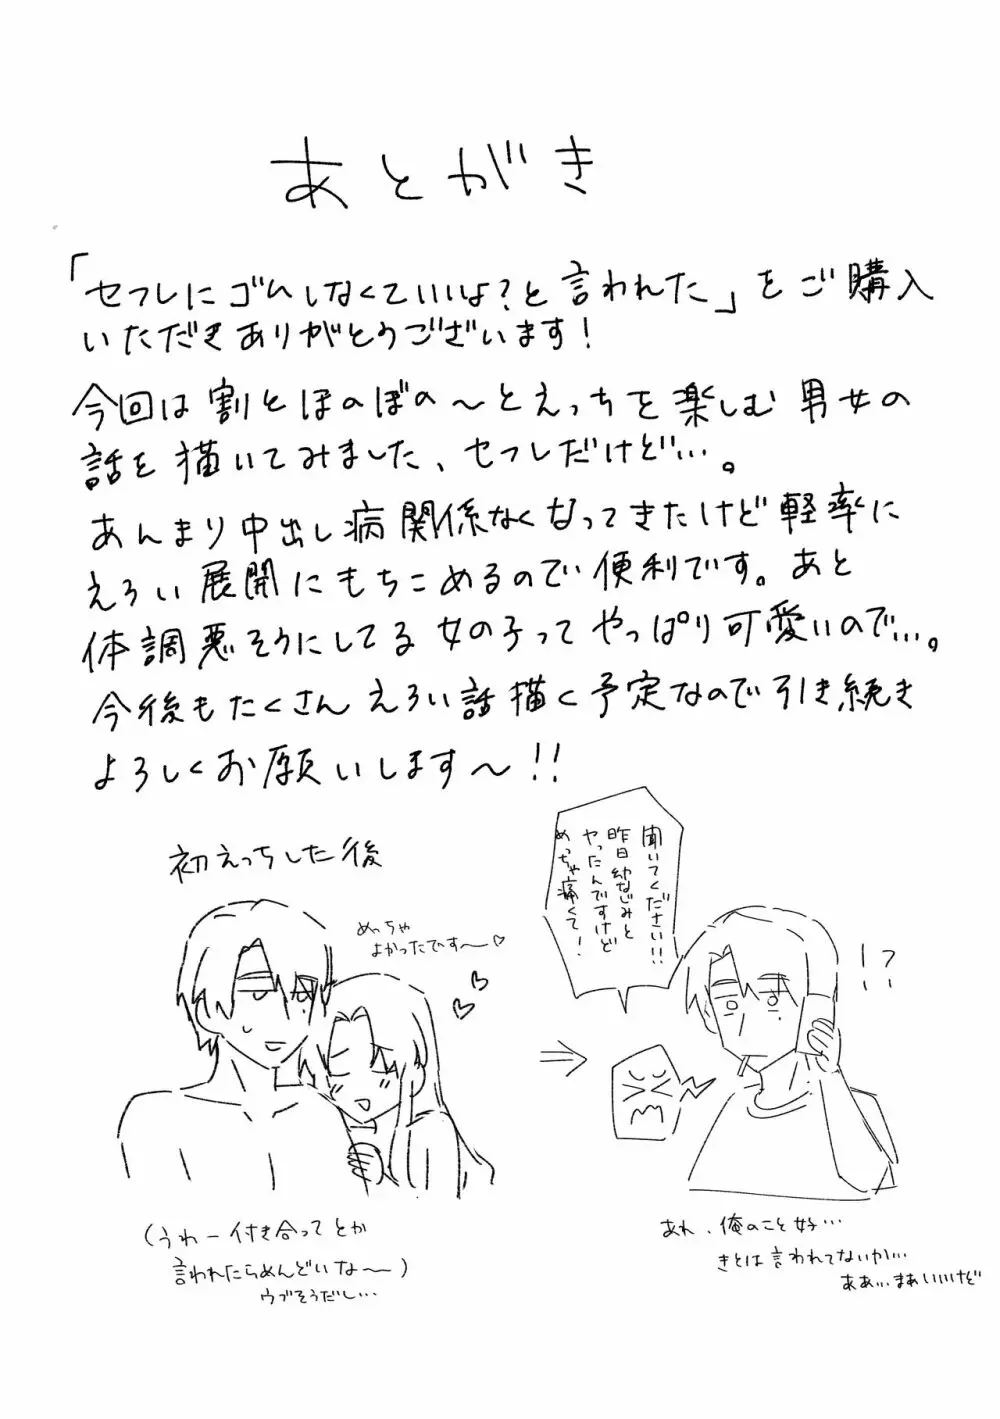 あとがき
「セフレにゴムしなくていいよ?と言われた」をご購入
いただきありがとうございます!
今回は割とほのぼの〜とえっちを楽しむ男女の
話を描いてみました、セフレだけど…。
あんまり中出し病関係なくなってきたけど軽率に
えろい展開にもちこめるので便利です。あと
体調悪そうにしてる女の子ってやっぱり可愛いので…。
今後もたくさんえろい話描く予定なので引き続き
よろしくお願いします〜!!
初えっちした後
めっちゃ
よかったです〜♡
(うわー付き合ってとか
言われたらめんどいな〜)
ウブそうだし…
聞いてください!!
昨日幼なじみと
ヤったんですけど
めっちゃ痛くて!
!?
あれ、俺のこと好…
きとは言われてないか…
ああ…まあいいけど